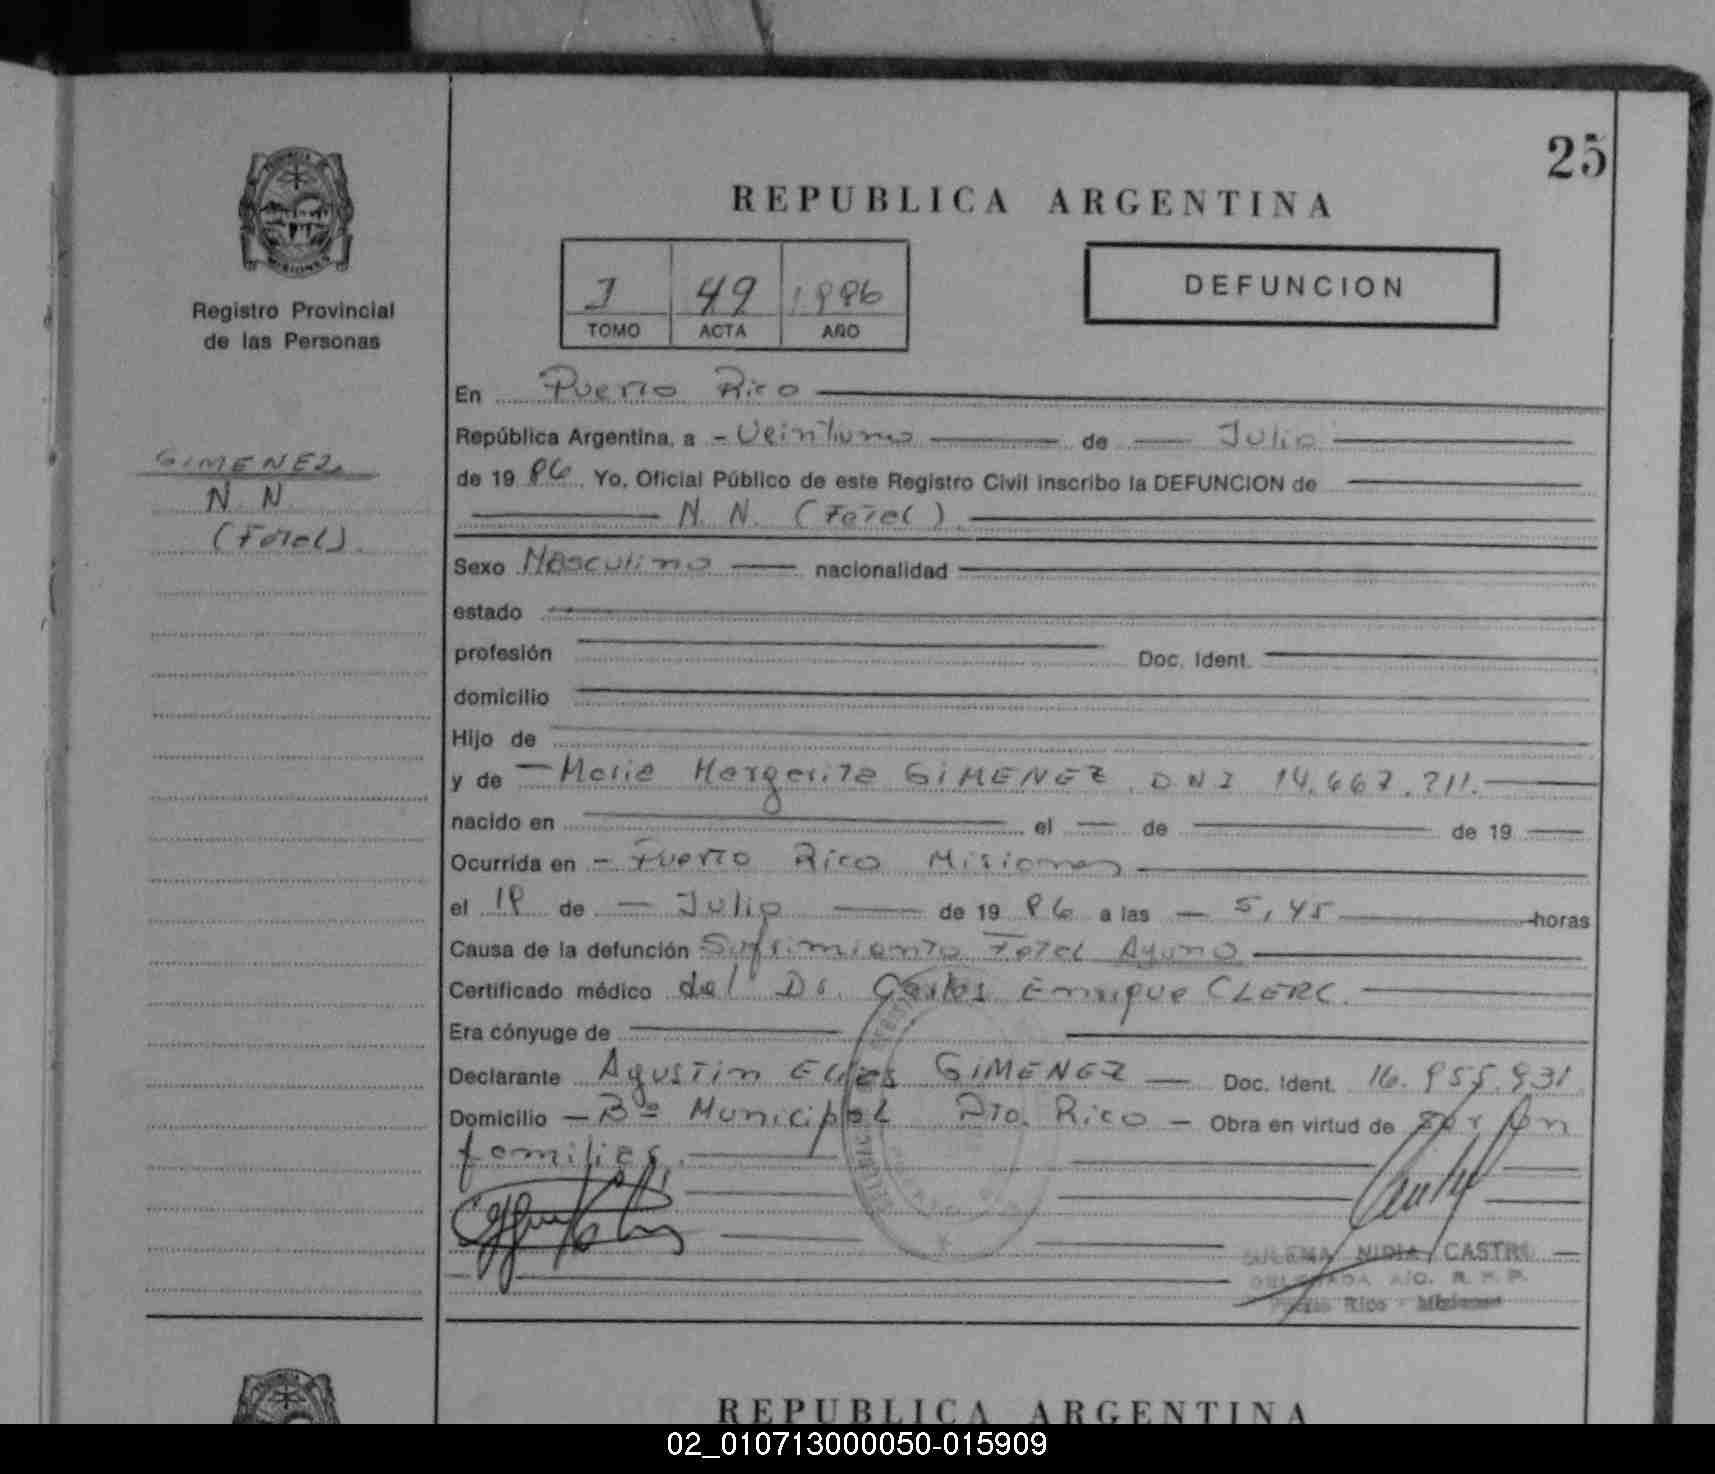 25
REPUBLICA ARGENTINA
PROVINCIA
MISIONES
I 49 1986
TOMO ACTA AÑO
DEFUNCION
Registro Provincial
de las Personas
GIMENEZ
N. N.
(Fetal).
En Puerto Rico
República Argentina, a - Veintiuno de Julio
de 19 86. Yo, Oficial Público de este Registro Civil inscribo la DEFUNCION de
N. N. (Fetal).
Sexo Masculino nacionalidad
estado
profesión Doc. Ident.
domicilio
Hijo de
y de - Maria Margarita GIMENEZ. D.N.I 14.667.711.
nacido en el de de 19
Ocurrida en - Puerto Rico Misiones
el 18 de Julio de 19 86 a las 5,45 horas
Causa de la defunción Sufrimiento Fetal Agudo
Certificado médico del Dr. Carlos Enrique CLERC.
Era cónyuge de
Declarante Agustin Elias GIMENEZ Doc. Ident. 16.955.931
Domicilio - Bº Municipal Pto. Rico - Obra en virtud de ser
familiar.
NIDIA CASTRO
DELEGADA A/C. R. P. P.
Puerto Rico - Misiones
REPUBLICA ARGENTINA
02_010713000050-015909